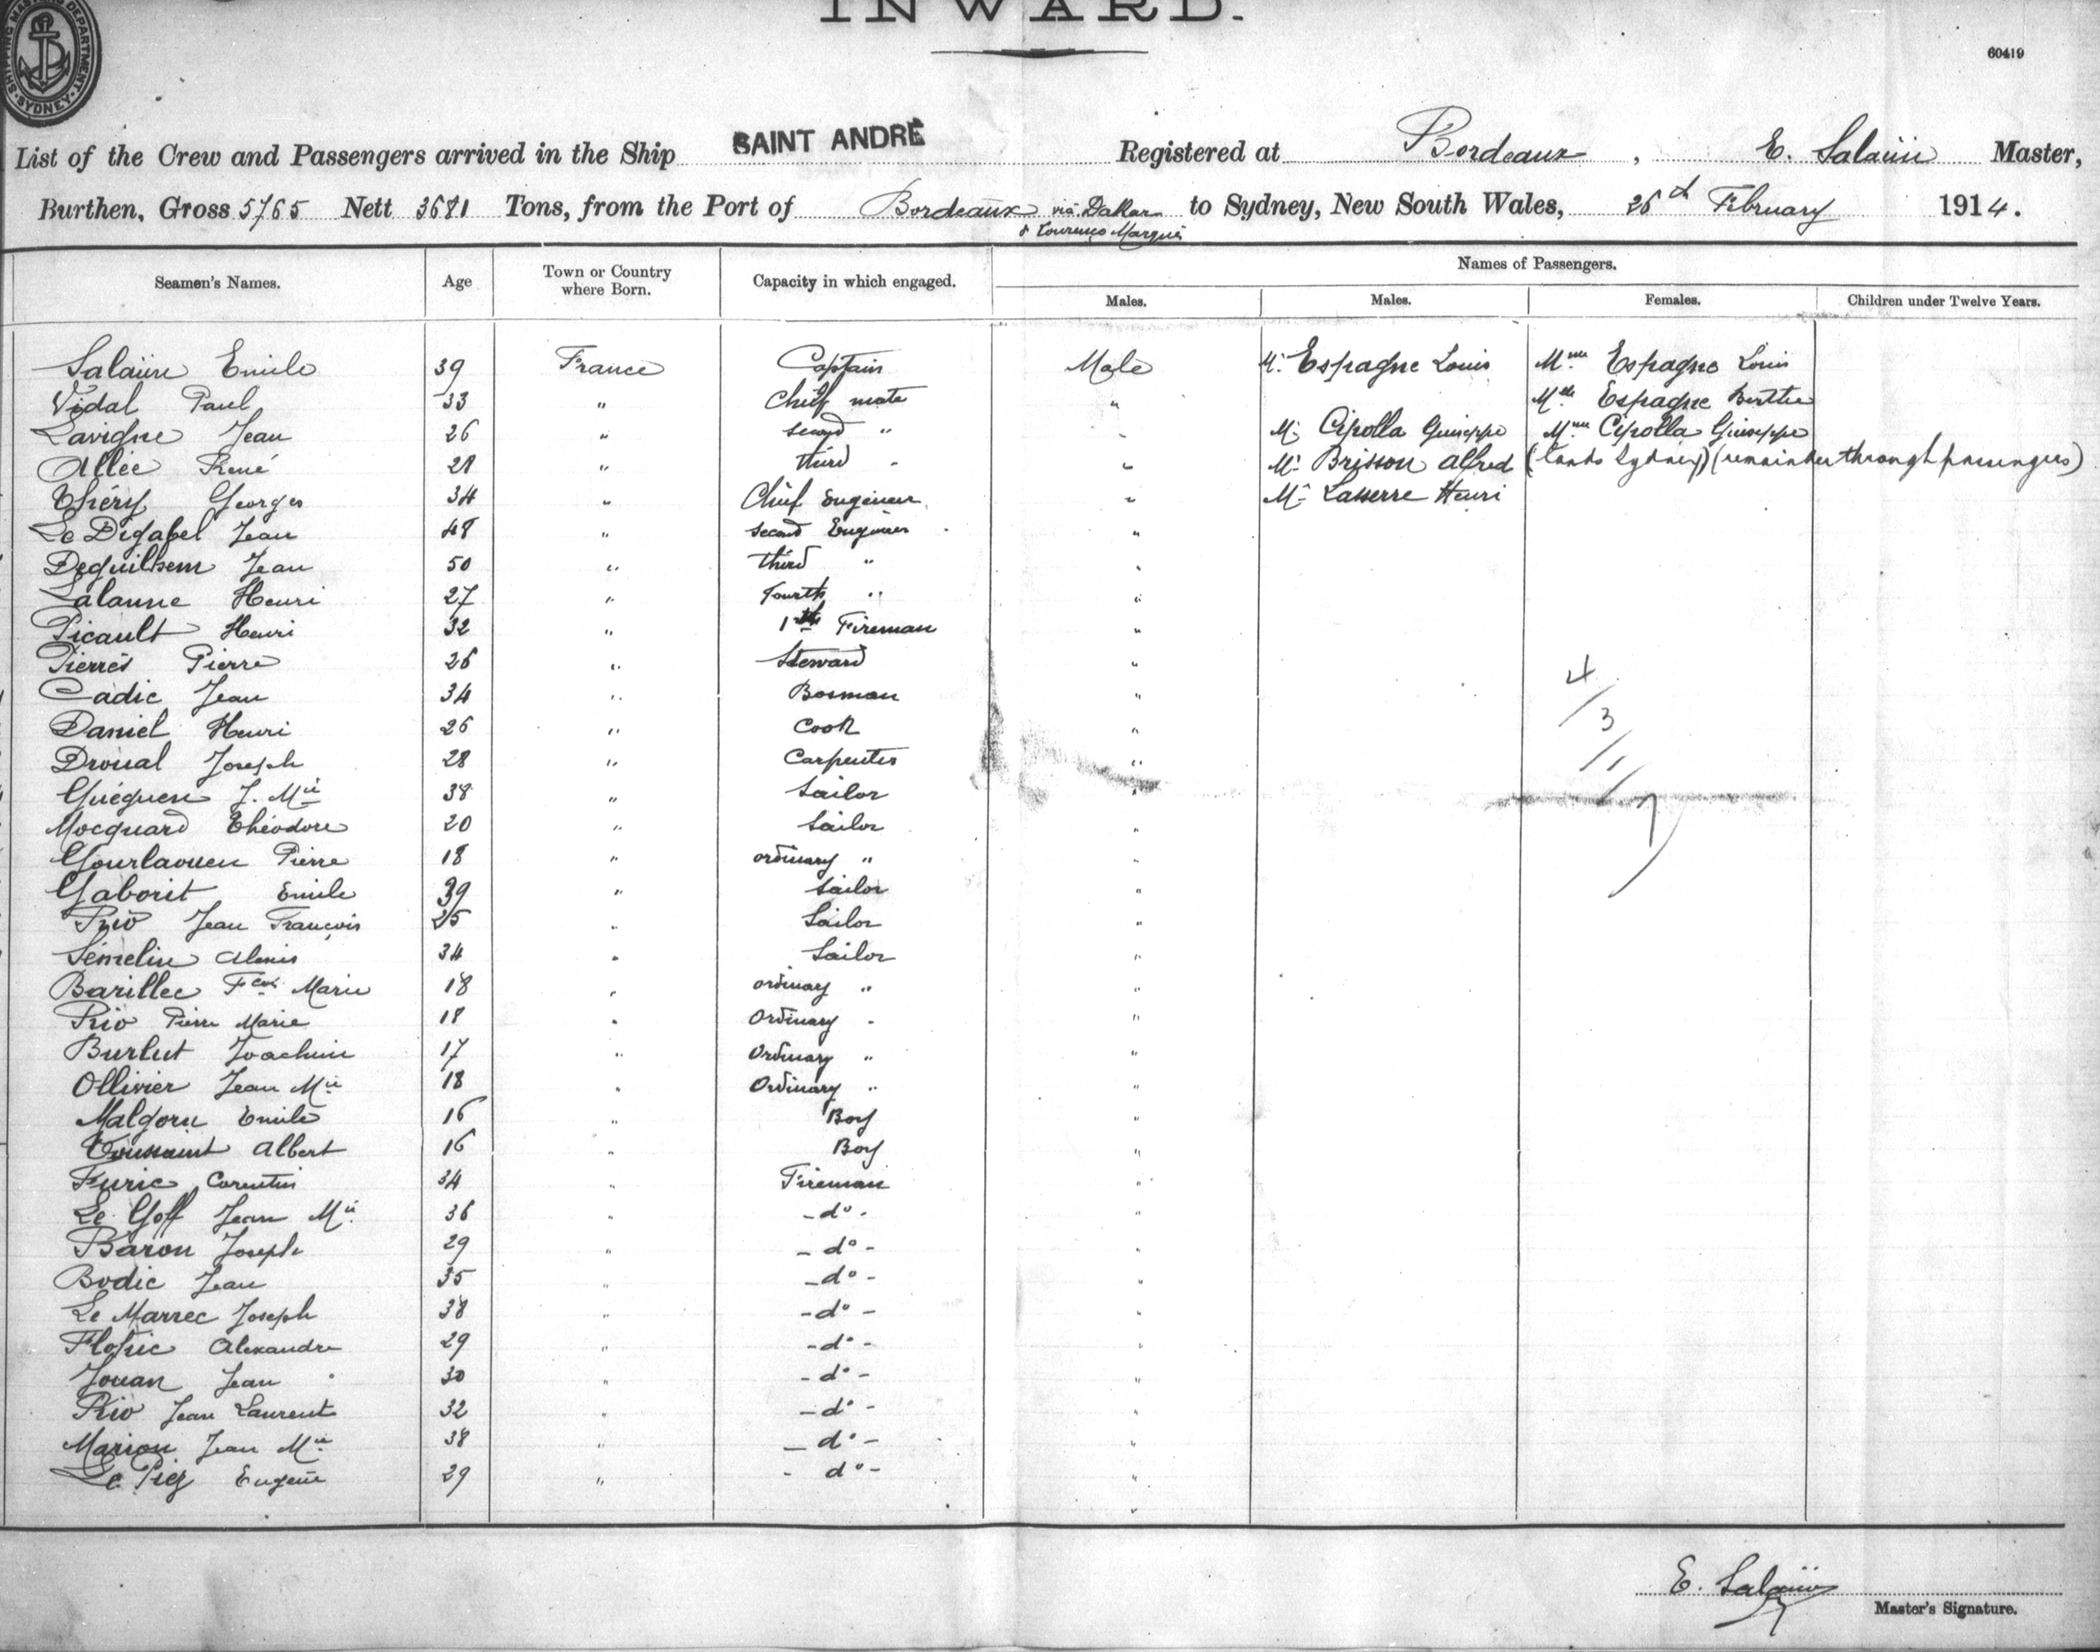 INWARD.
SHIPPING MASTERS DEPARTMENT
SYDNEY
60419
List of the Crew and Passengers arrived in the Ship SAINT ANDRÉ Registered at Bordeaux, E. Salaün Master,
Burthen, Gross 5765 Nett 3681 Tons, from the Port of Bordeaux via Dakar to Sydney, New South Wales, 26th February 1914.
& Lourenço Marquès
Seamen's Names. Age Town or Country where Born. Capacity in which engaged. Names of Passengers.
Males. Males. Females. Children under Twelve Years.
Salaün Emile 39 France Captain Male Mr Espagne Louis Mme Espagne Louis
Vidal Paul 33 " Chief mate " Mlle Espagne Berthe
Lavigne Jean 26 " second " " Mr Cipolla Guiseppe Mme Cipolla Giuseppe
Allée René 28 " third " " Mr Brisson Alfred (lands Sydney) (remainder through passengers)
Théry Georges 34 " Chief Engineer " Mr Lasserre Henri
Le Digabel Jean 48 " second Engineer "
Deguilhem Jean 50 " third " "
Lalanne Henri 27 " Fourth " "
Picault Henri 32 " 1st Fireman "
Pierrès Pierre 26 " Steward "
Cadic Jean 34 " Bosman "
Daniel Henri 26 " Cook "
Droual Joseph 28 " Carpenter "
Guéguen J. Mie 38 " Sailor "
Mocquard Théodore 20 " Sailor "
Gourlaouen Pierre 18 " ordinary " "
Gaborit Emile 39 " Sailor "
Rio Jean François 25 " Sailor "
Sémelin Alexis 34 " Sailor "
Barillec Fcois Marie 18 " ordinary " "
Rio Pierre Marie 18 " Ordinary " "
Burlut Joachim 17 " Ordinary " "
Ollivier Jean Mie 18 " Ordinary " "
Malgorn Emile 16 " Boy "
Toussaint Albert 16 " Boy "
Furic Corentin 34 " Fireman "
Le Goff Jean Mie 36 " - do - "
Baron Joseph 29 " - do - "
Bodic Jean 35 " - do - "
Le Marrec Joseph 38 " - do - "
Flohic Alexandre 29 " - do - "
Jouan Jean 30 " - do - "
Rio Jean Laurent 32 " - do - "
Marion Jean Mie 38 " - do - "
Le Piez Eugène 29 " - do - "
4/
3/
1/
7
E. Salaün
Master's Signature.